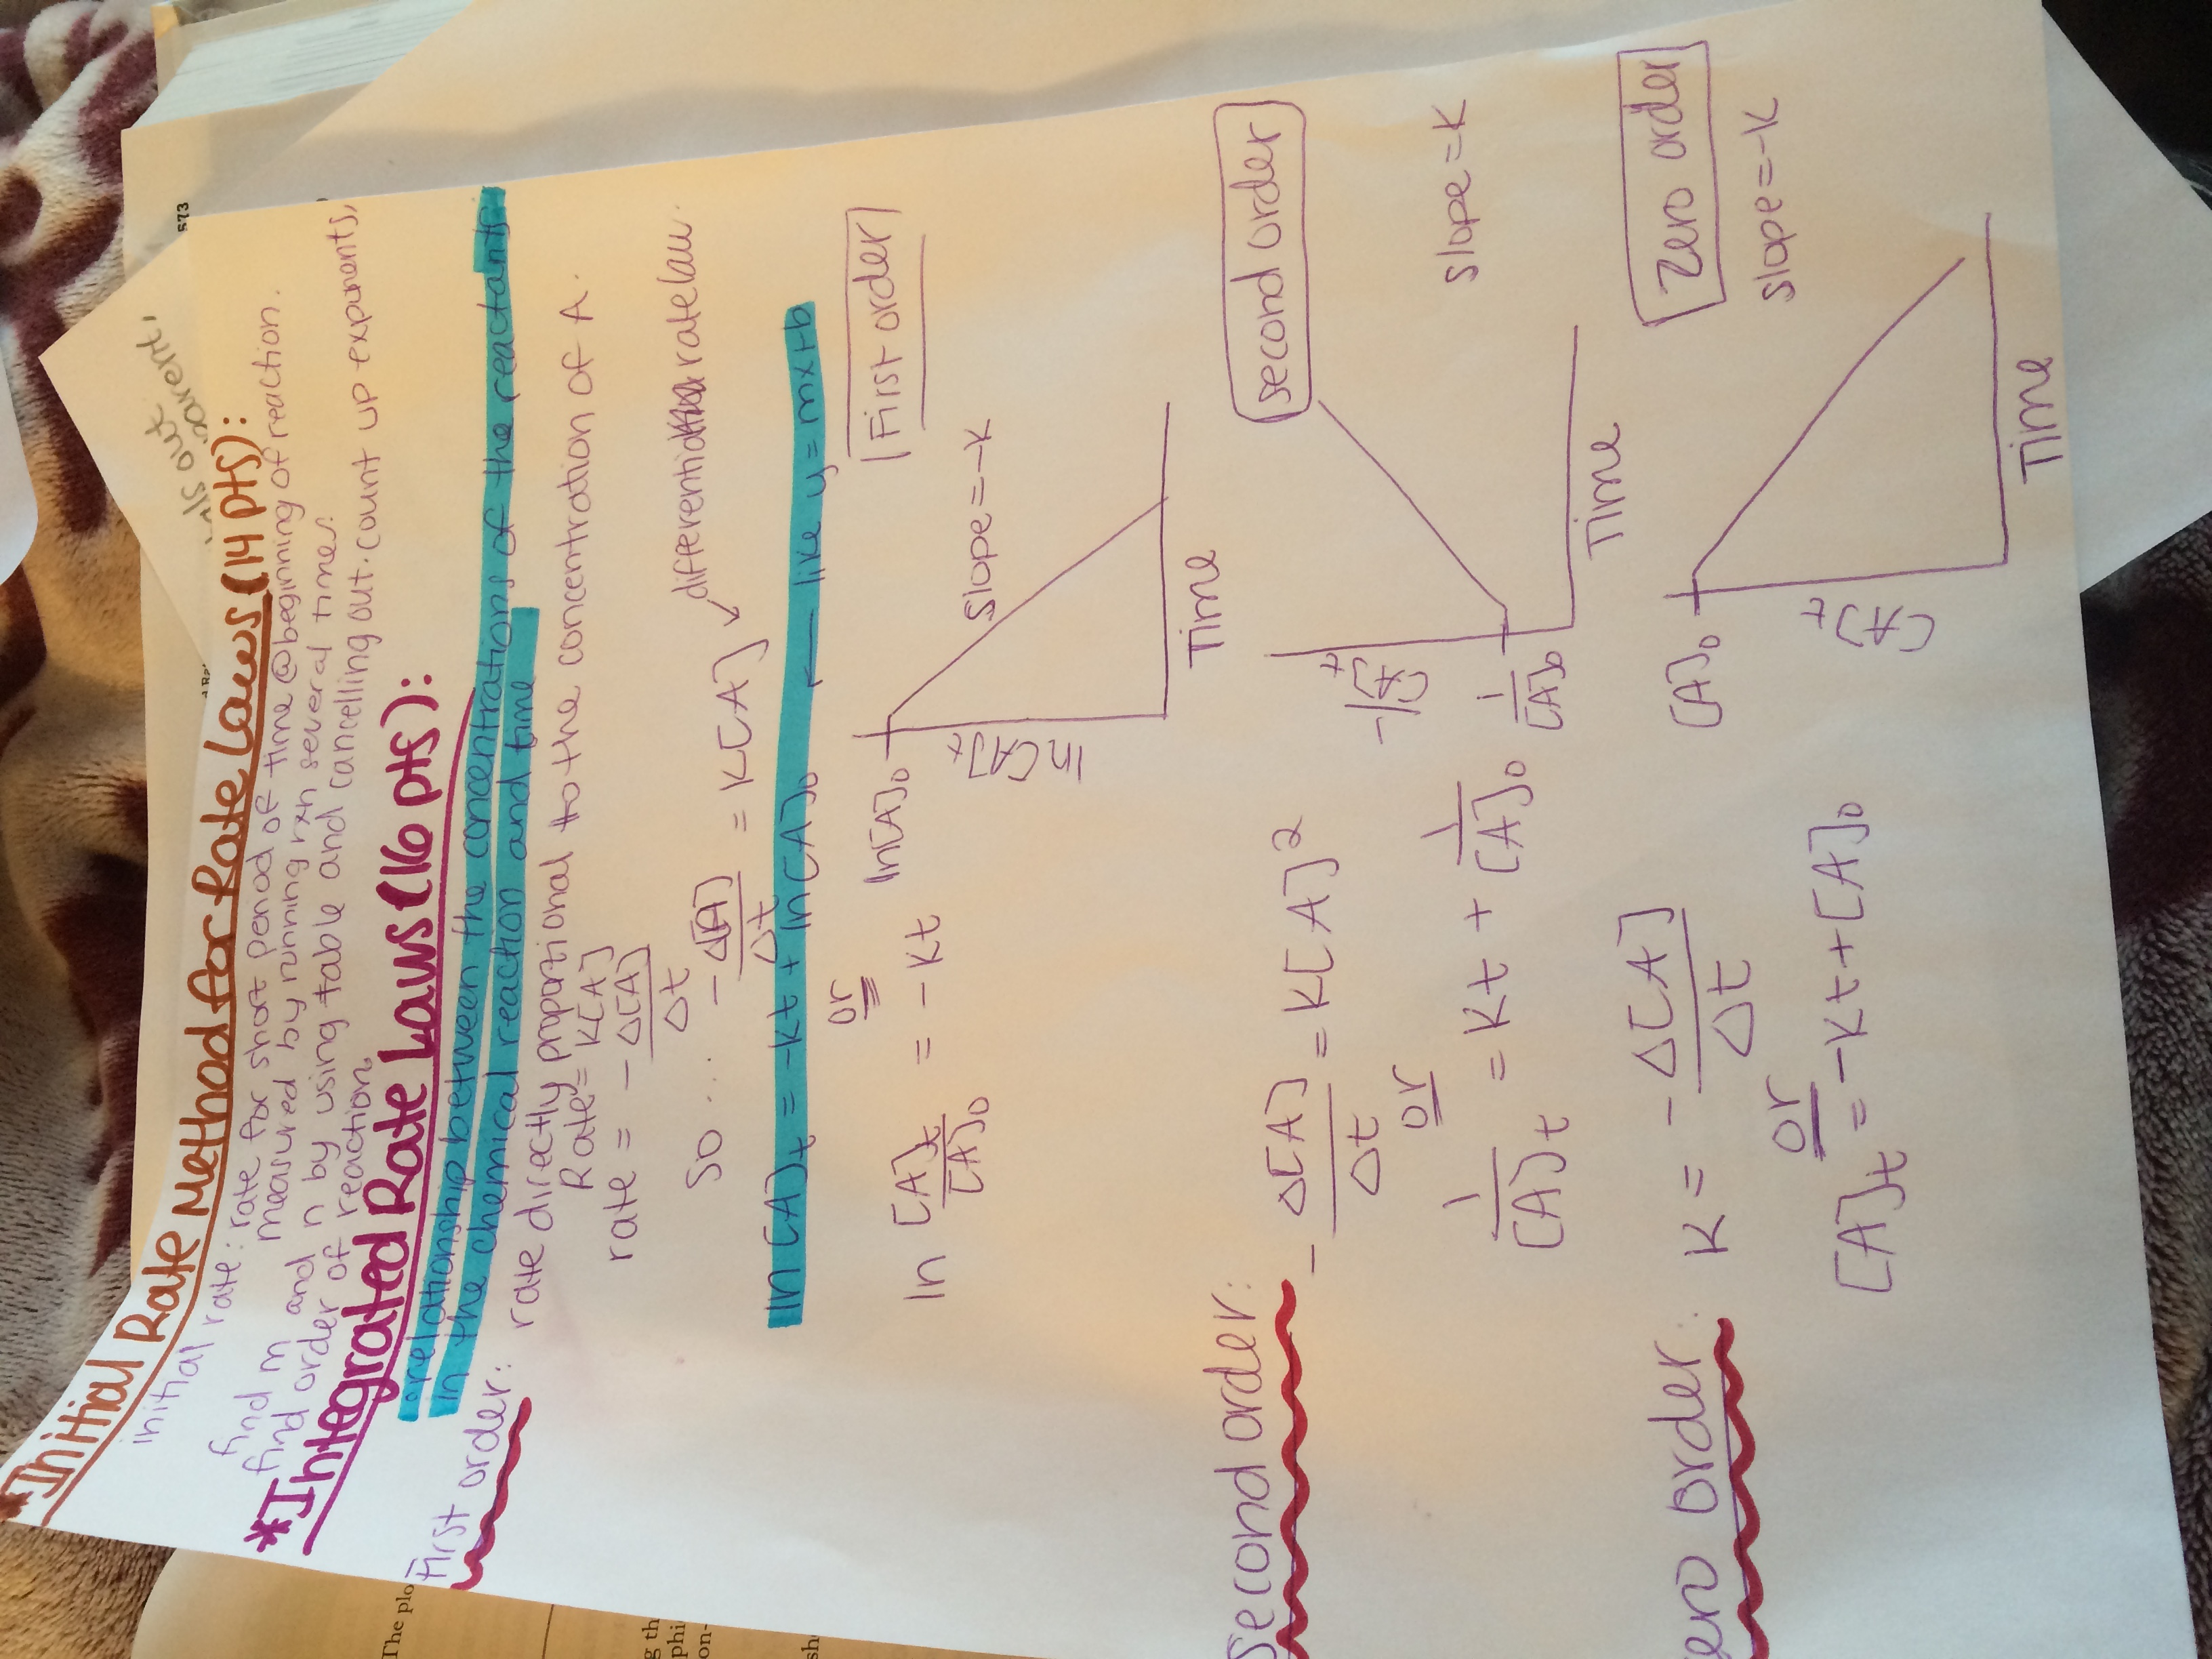 *Initial Rate Method for Rate Laws (14 pts):
initial rate: rate for short period of time @ beginning of reaction.
measured by running rxn several times.
find m and n by using table and cancelling out. count up exponents,
find order of reaction.
*Integrated Rate Laws (16 pts):
relationship between the concentrations of the reactants
in the chemical reaction and time
First order: rate directly proportional to the concentration of A.
Rate = K[A]
rate = -Δ[A]/Δt
so... -Δ[A]/Δt = K[A] ↙ differential rate law.
ln[A]t = -Kt + ln[A]₀ ← like y = mx+b
or
ln [A]t/[A]₀ = -Kt
First order
ln[A]₀
ln[A]t
slope = -K
Time
Second order: -Δ[A]/Δt = K[A]²
or
1/[A]t = Kt + 1/[A]₀
second order
1/[A]t
1/[A]₀
slope = K
Time
zero order: K = -Δ[A]/Δt
or
[A]t = -Kt + [A]₀
Zero order
[A]₀
[A]t
slope = -K
Time
573
out
The plo
g th
phi
on-
sh